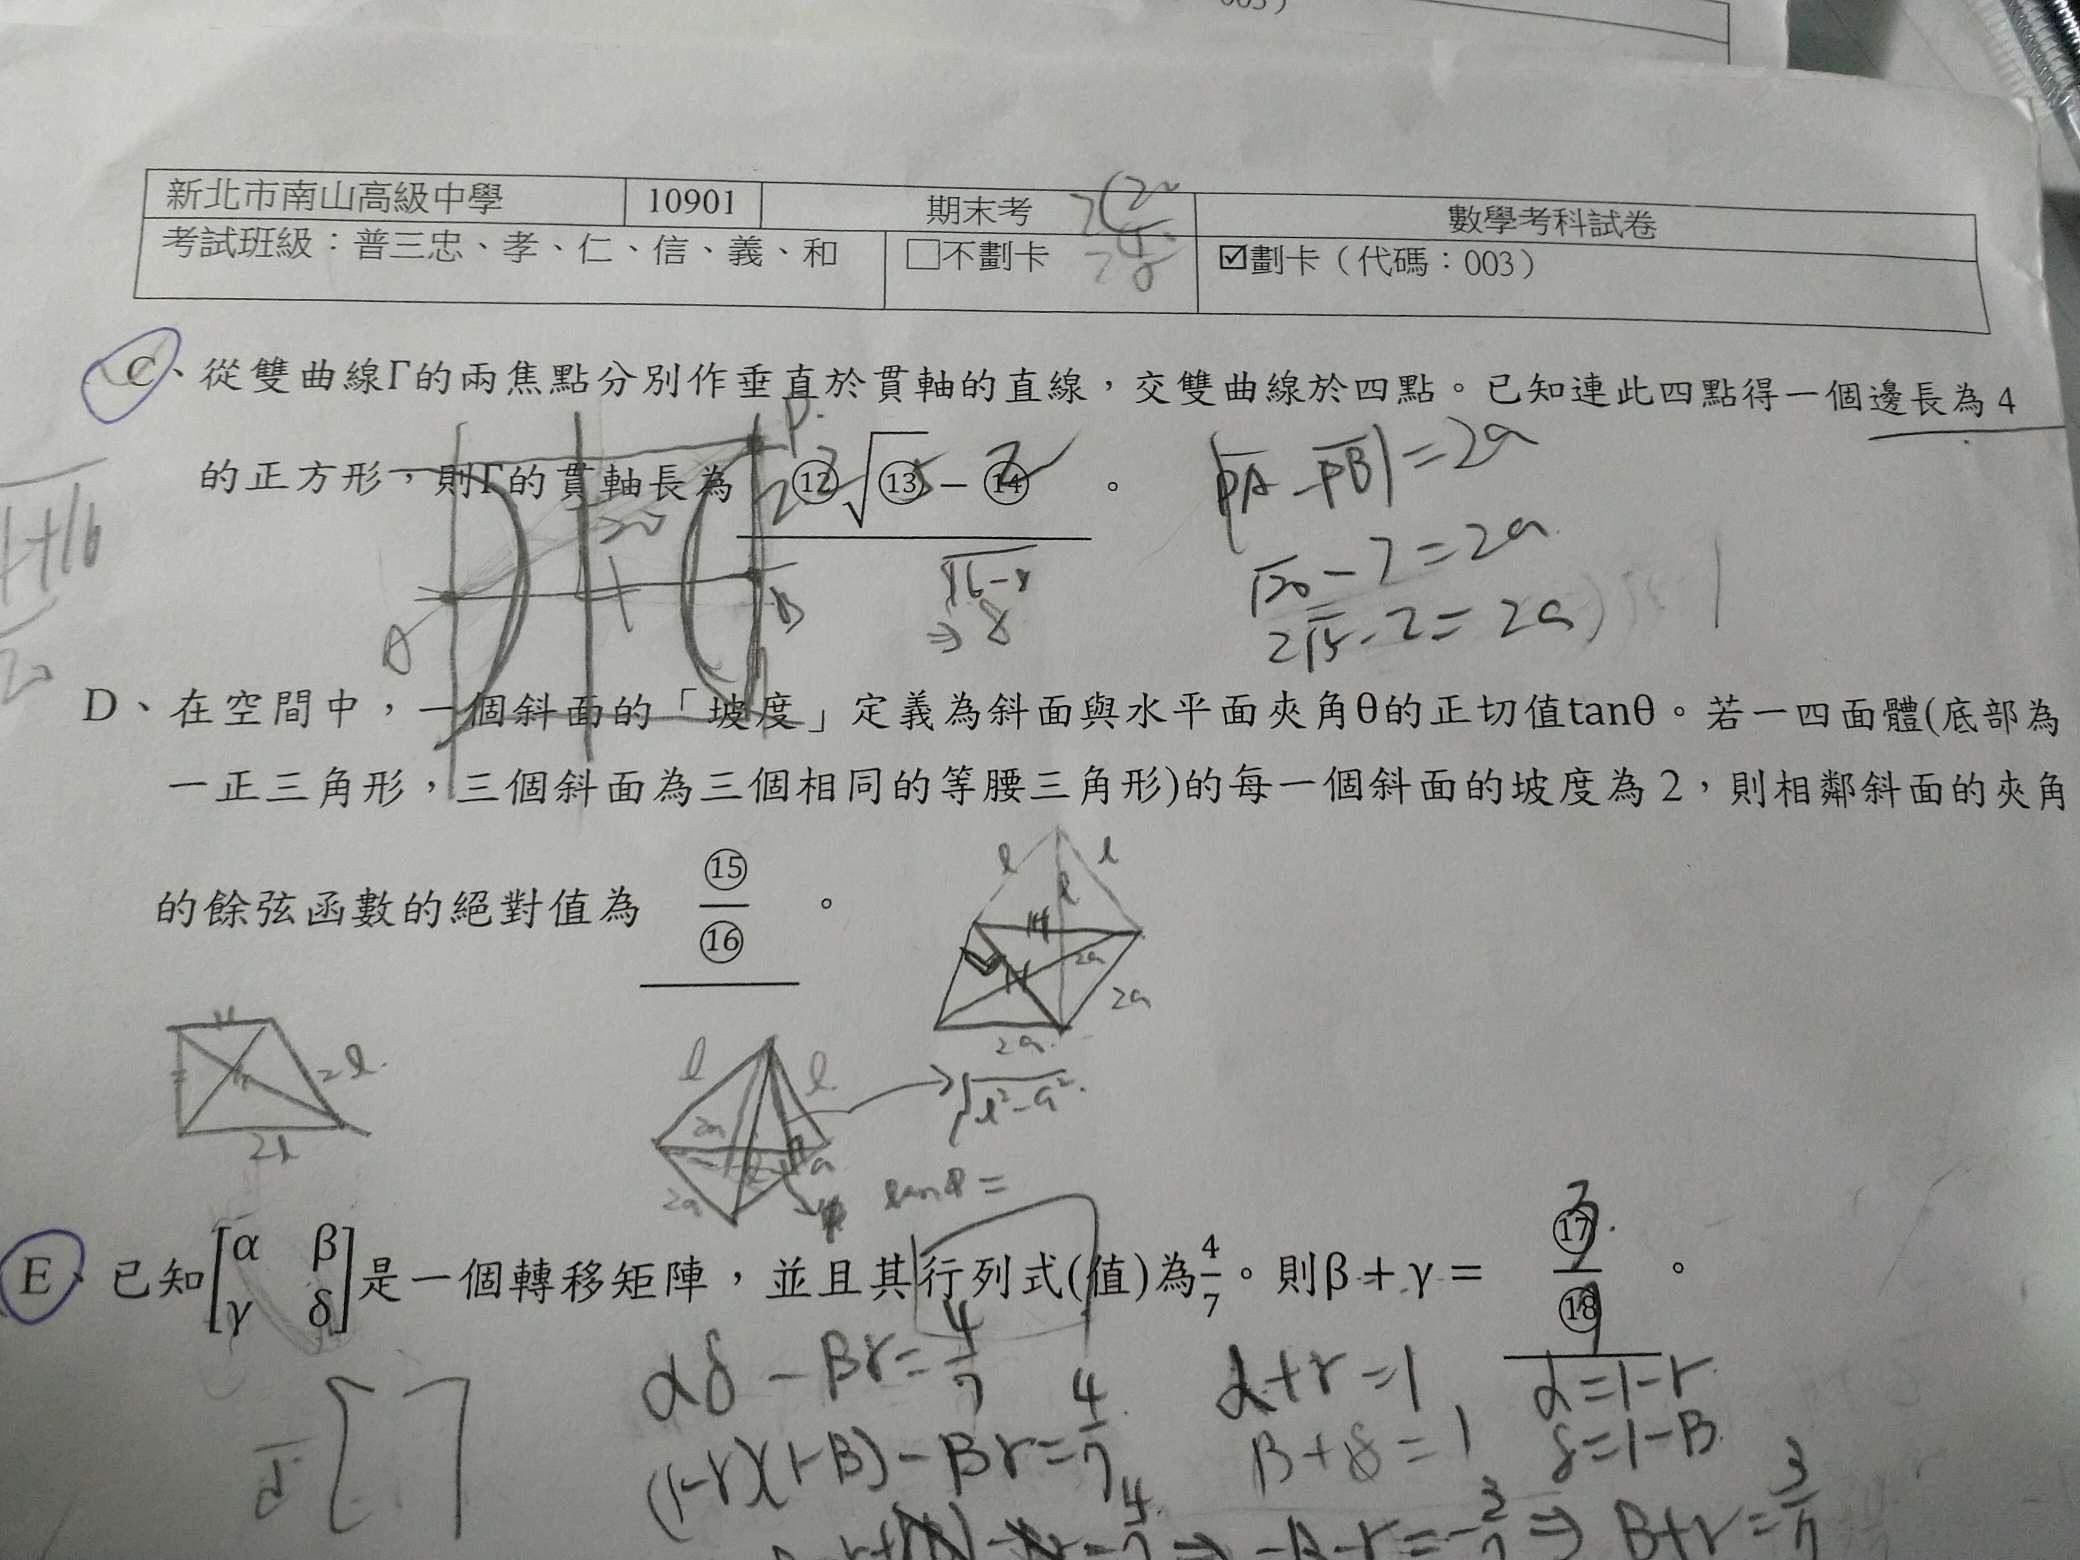 003)
新北市南山高級中學 10901 期末考 數學考科試卷
考試班級：普三忠、孝、仁、信、義、和 □不劃卡 ☑劃卡（代碼：003）
C、從雙曲線Γ的兩焦點分別作垂直於貫軸的直線，交雙曲線於四點。已知連此四點得一個邊長為 4
的正方形，則Γ的貫軸長為 ⑫√⑬－⑭ 。
P
|PA - PB| = 2a
√20 - 2 = 2a
2√5 - 2 = 2a
A
B
D、在空間中，一個斜面的「坡度」定義為斜面與水平面夾角θ的正切值tanθ。若一四面體(底部為
一正三角形，三個斜面為三個相同的等腰三角形)的每一個斜面的坡度為 2，則相鄰斜面的夾角
的餘弦函數的絕對值為 ⑮/⑯ 。
l l
l
2a
2a
2a
l l
2a
a
2a
√l²-a²
tanθ =
E、已知[α β
γ δ]是一個轉移矩陣，並且其行列式(值)為4/7。則β + γ = ⑰/⑱ 。
3
7
αδ - βγ = 4/7
α+γ = 1
α = 1-γ
(1-γ)(1-β) - βγ = 4/7
β+δ = 1
δ = 1-β
⇒ -β-γ = -3/7 ⇒ β+γ = 3/7